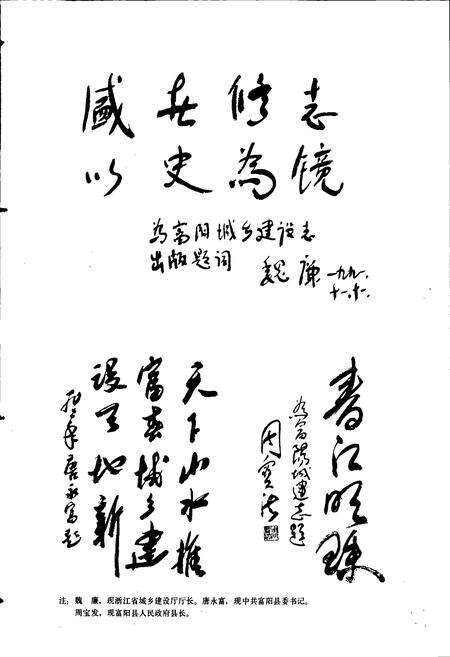 盛世修志
以史为镜
为富阳城乡建设志
出版题词
魏廉 一九九一.
十一.十一.
春江明珠
为富阳城建志题
周宝法
天下山水推
富春城乡建
设天地新
唐永富题
注：魏　廉，现浙江省城乡建设厅厅长。唐永富，现中共富阳县委书记。
周宝发，现富阳县人民政府县长。